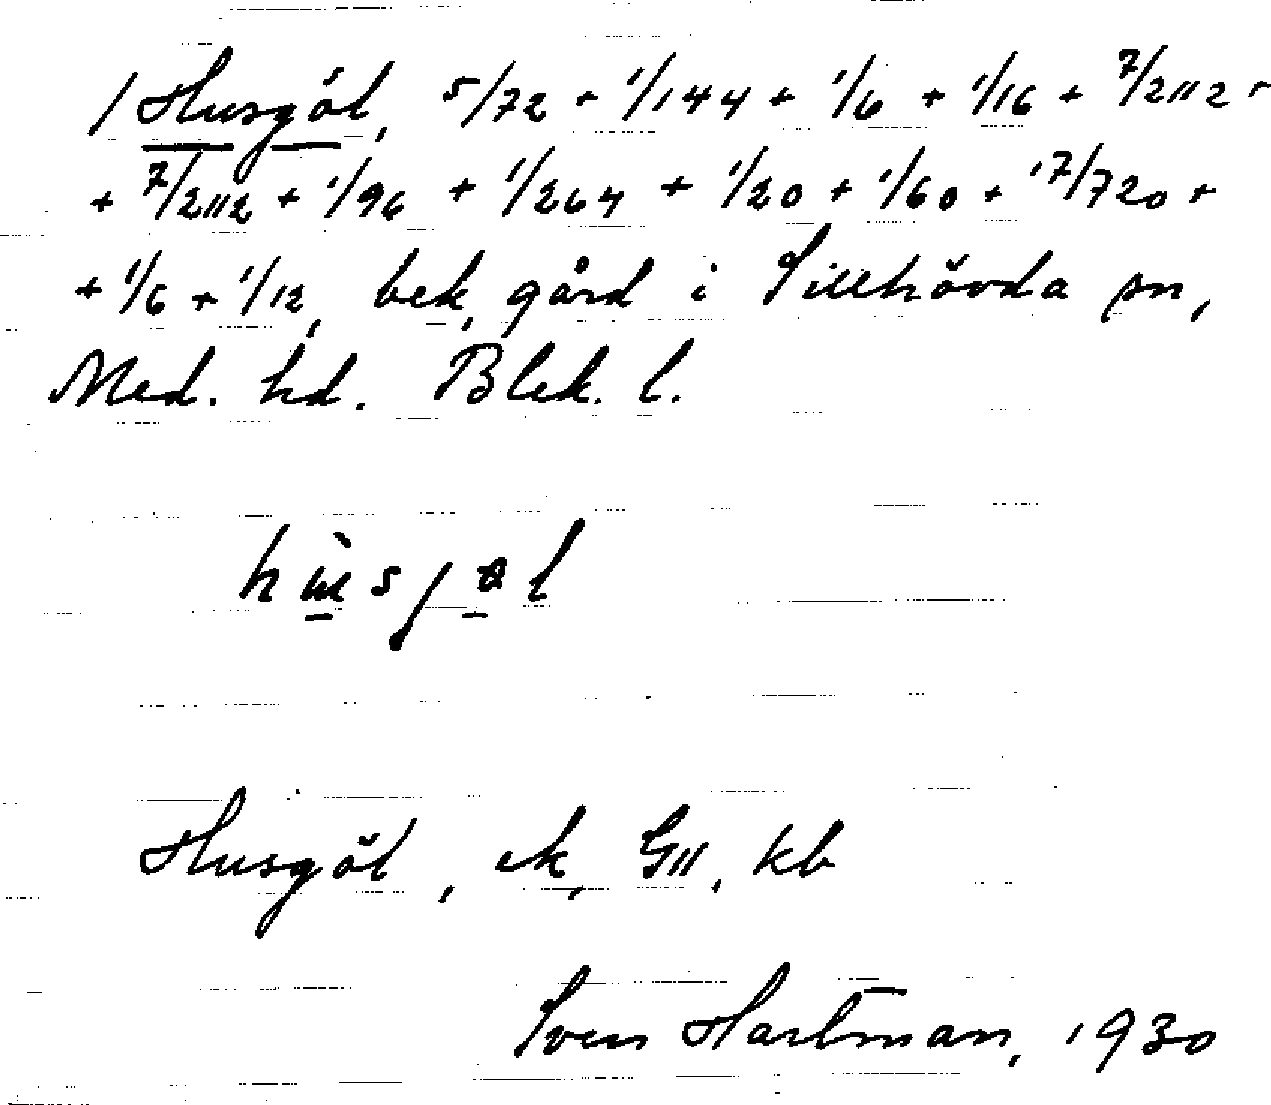 1 Husgöl, 5/72 + 1/144 + 1/6 + 1/16 + 7/2112 +
+ 7/2112 + 1/96 + 1/264 + 1/20 + 1/60 + 17/720 +
+ 1/6 + 1/12, bek, gård i Tillhövda sn,
Med. hd. Blek. l.
Husgöl, ek, GII, kb
Sven Hartman, 1930